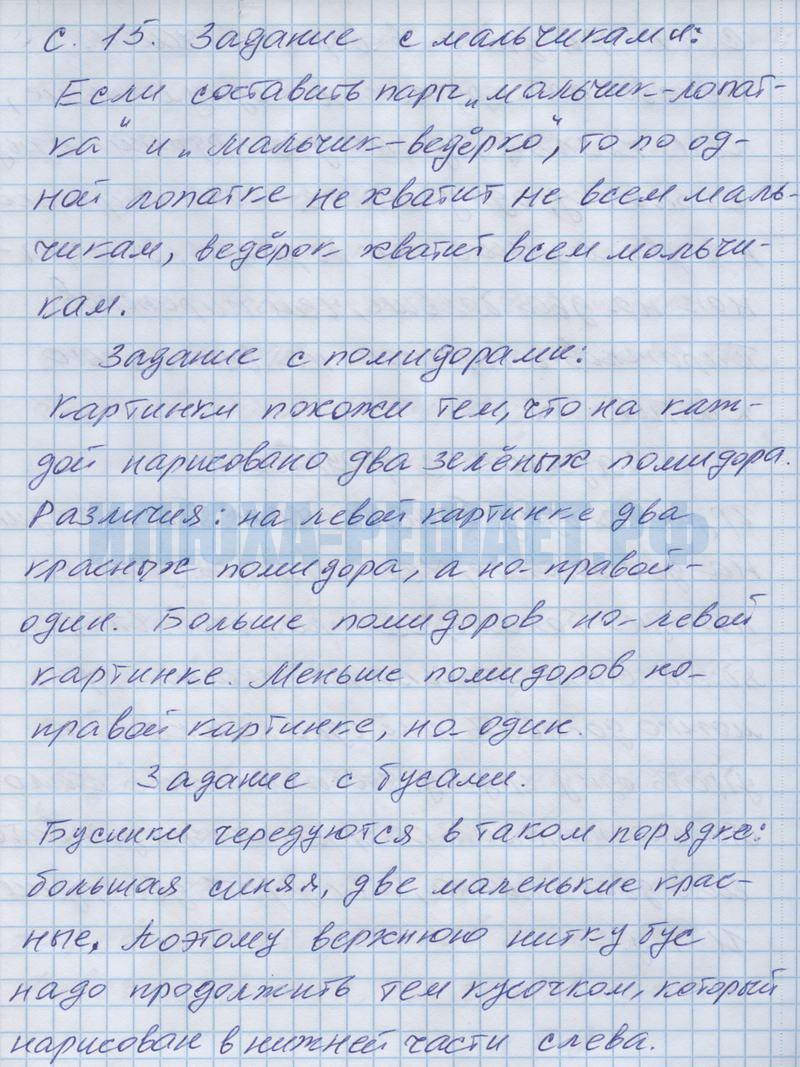 с. 15. Задание с мальчиками:
Если составить пары „мальчик-лопат-
ка" и „мальчик-ведёрко", то по од-
ной лопатке не хватит не всем маль-
чикам, ведёрок хватит всем мальчи-
кам.
Задание с помидорами:
Картинки похожи тем, что на каж-
дой нарисовано два зелёных помидора.
Различия: на левой картинке два
красных помидора, а на правой-
один. Больше помидоров на левой
картинке. Меньше помидоров на
правой картинке, на один.
Задание с бусами.
Бусинки чередуются в таком порядке:
большая синяя, две маленькие крас-
ные. Поэтому верхнюю нитку бус
надо продолжить тем кусочком, который
нарисован в нижней части слева.
ШКОЛА-РЕШАЕТ.РФ